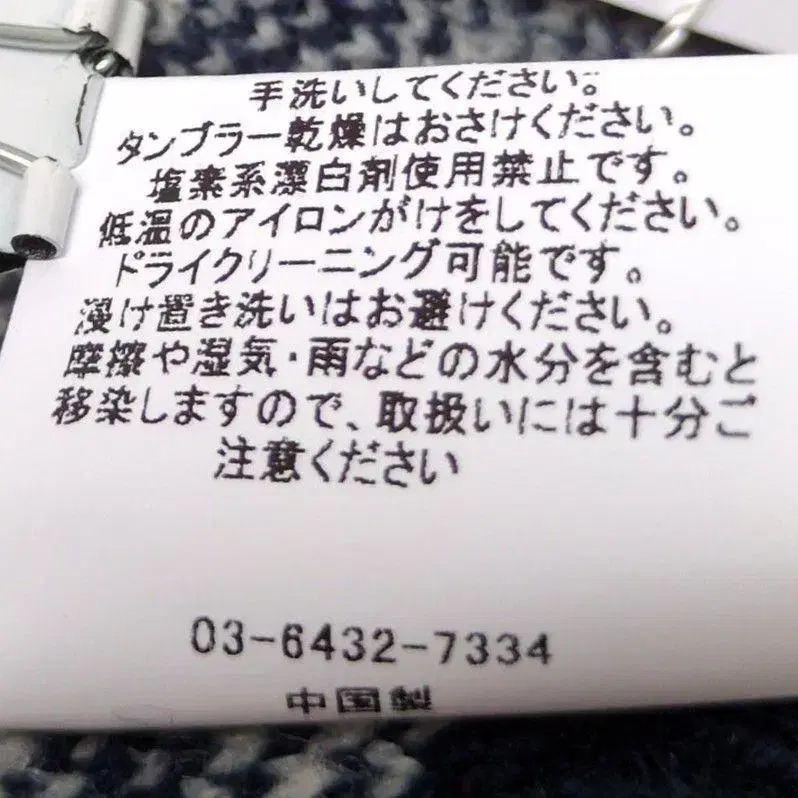 手洗いしてください。
タンブラー乾燥はおさけください。
塩素系漂白剤使用禁止です。
低温のアイロンがけをしてください。
ドライクリーニング可能です。
浸け置き洗いはお避けください。
摩擦や湿気・雨などの水分を含むと
移染しますので、取扱いには十分ご
注意ください
03-6432-7334
中国製